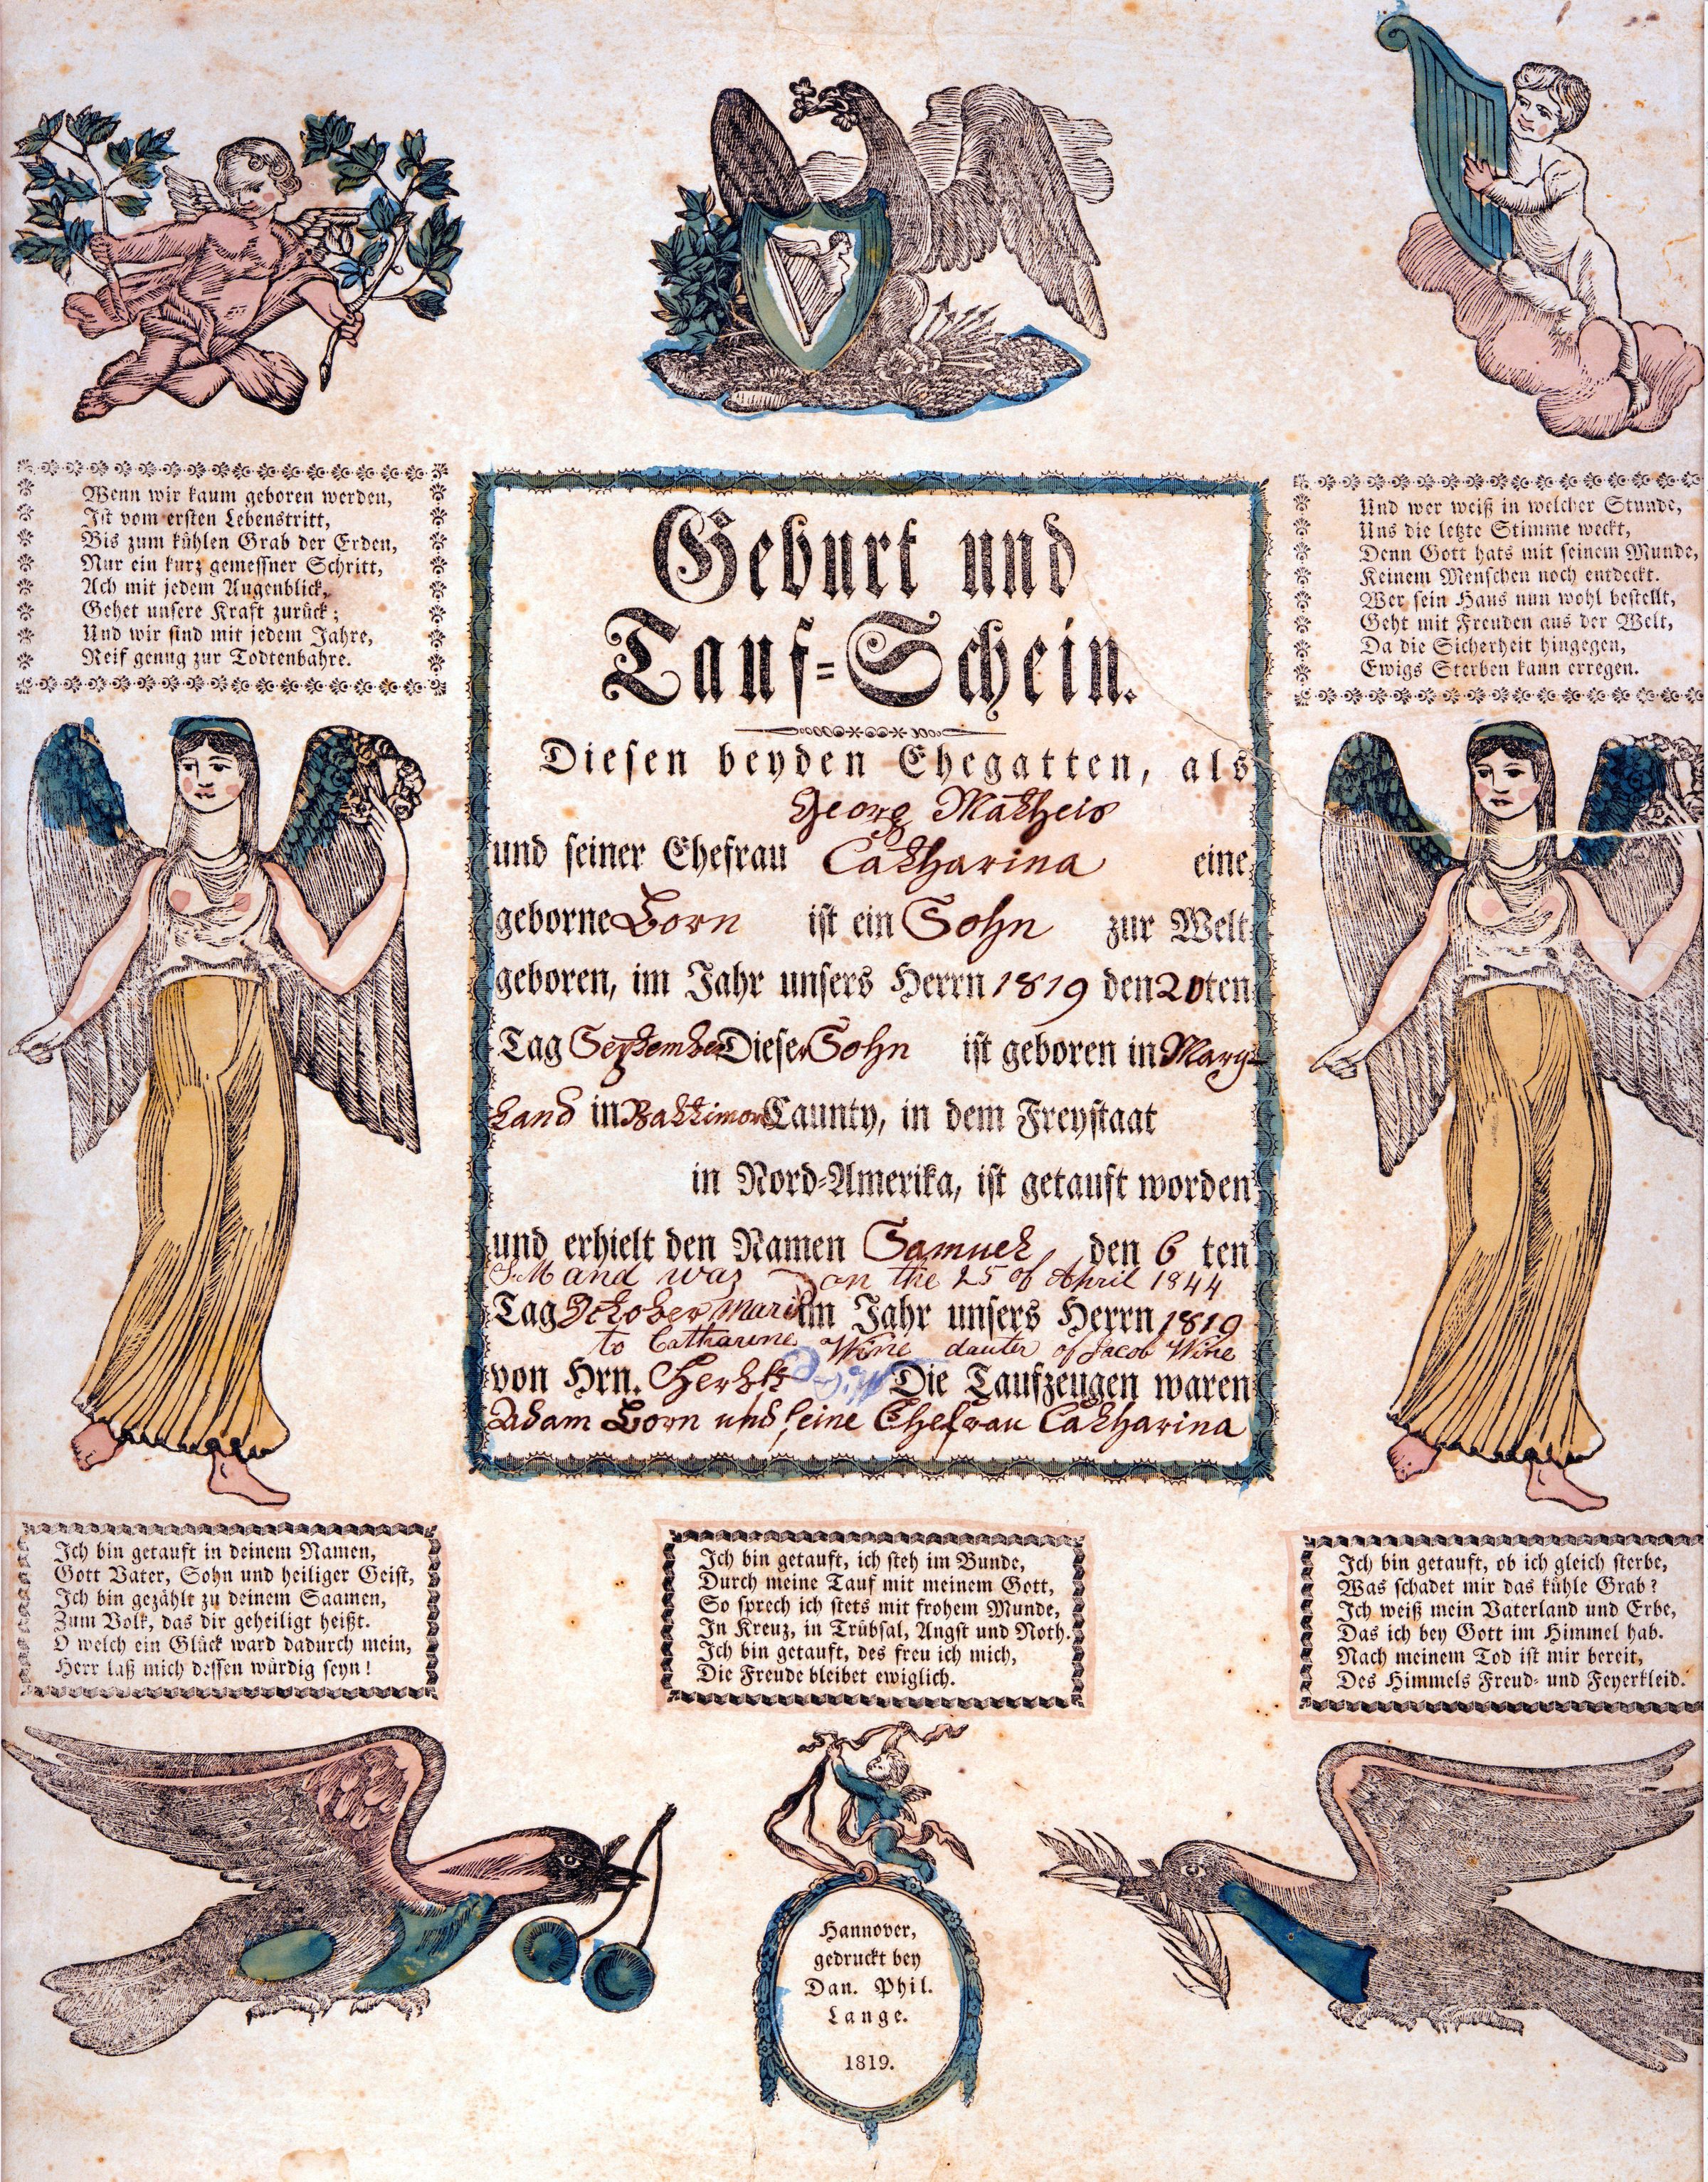 Wenn wir kaum geboren werden,
Ist vom ersten Lebenstritt,
Bis zum kühlen Grab der Erden,
Nur ein kurz gemessner Schritt,
Ach mit jedem Augenblick,
Gehet unsere Kraft zurück;
Und wir sind mit jedem Jahre,
Reif genug zur Todtenbahre.
Und wer weiß in welcher Stunde,
Uns die letzte Stimme weckt,
Denn Gott hats mit seinem Munde,
Keinem Menschen noch entdeckt.
Wer sein Haus nun wohl bestellt,
Geht mit Freuden aus der Welt,
Da die Sicherheit hingegen,
Ewigs Sterben kann erregen.
Geburt und
Tauf-Schein.
Diesen beyden Ehegatten, als
Georg Matheis
und seiner Ehefrau Catharina eine
geborne Born ist ein Sohn zur Welt
geboren, im Jahr unsers Herrn 1819 den 20ten
Tag September Dieser Sohn ist geboren in Mary-
land in Baltimor Caunty, in dem Freystaat
in Nord-Amerika, ist getauft worden
und erhielt den Namen Samuel den 6 ten
S.M and was on the 25 of April 1844
Tag October Marid im Jahr unsers Herrn 1819
to Catharine Wine dauter of Jacob Wine
von Hrn. Die Taufzeugen waren
Adam Born und seine Ehefrau Catharina
Ich bin getauft in deinem Namen,
Gott Vater, Sohn und heiliger Geist,
Ich bin gezählt zu deinem Saamen,
Zum Volk, das dir geheiligt heißt.
O welch ein Glück ward dadurch mein,
Herr laß mich dessen würdig seyn!
Ich bin getauft, ich steh im Bunde,
Durch meine Tauf mit meinem Gott,
So sprech ich stets mit frohem Munde,
In Kreuz, in Trübsal, Angst und Noth.
Ich bin getauft, des freu ich mich,
Die Freude bleibet ewiglich.
Ich bin getauft, ob ich gleich sterbe,
Was schadet mir das kühle Grab?
Ich weiß mein Vaterland und Erbe,
Das ich bey Gott im Himmel hab.
Nach meinem Tod ist mir bereit,
Des Himmels Freud- und Feyerkleid.
Hannover,
gedruckt bey
Dan. Phil.
Lange.
1819.